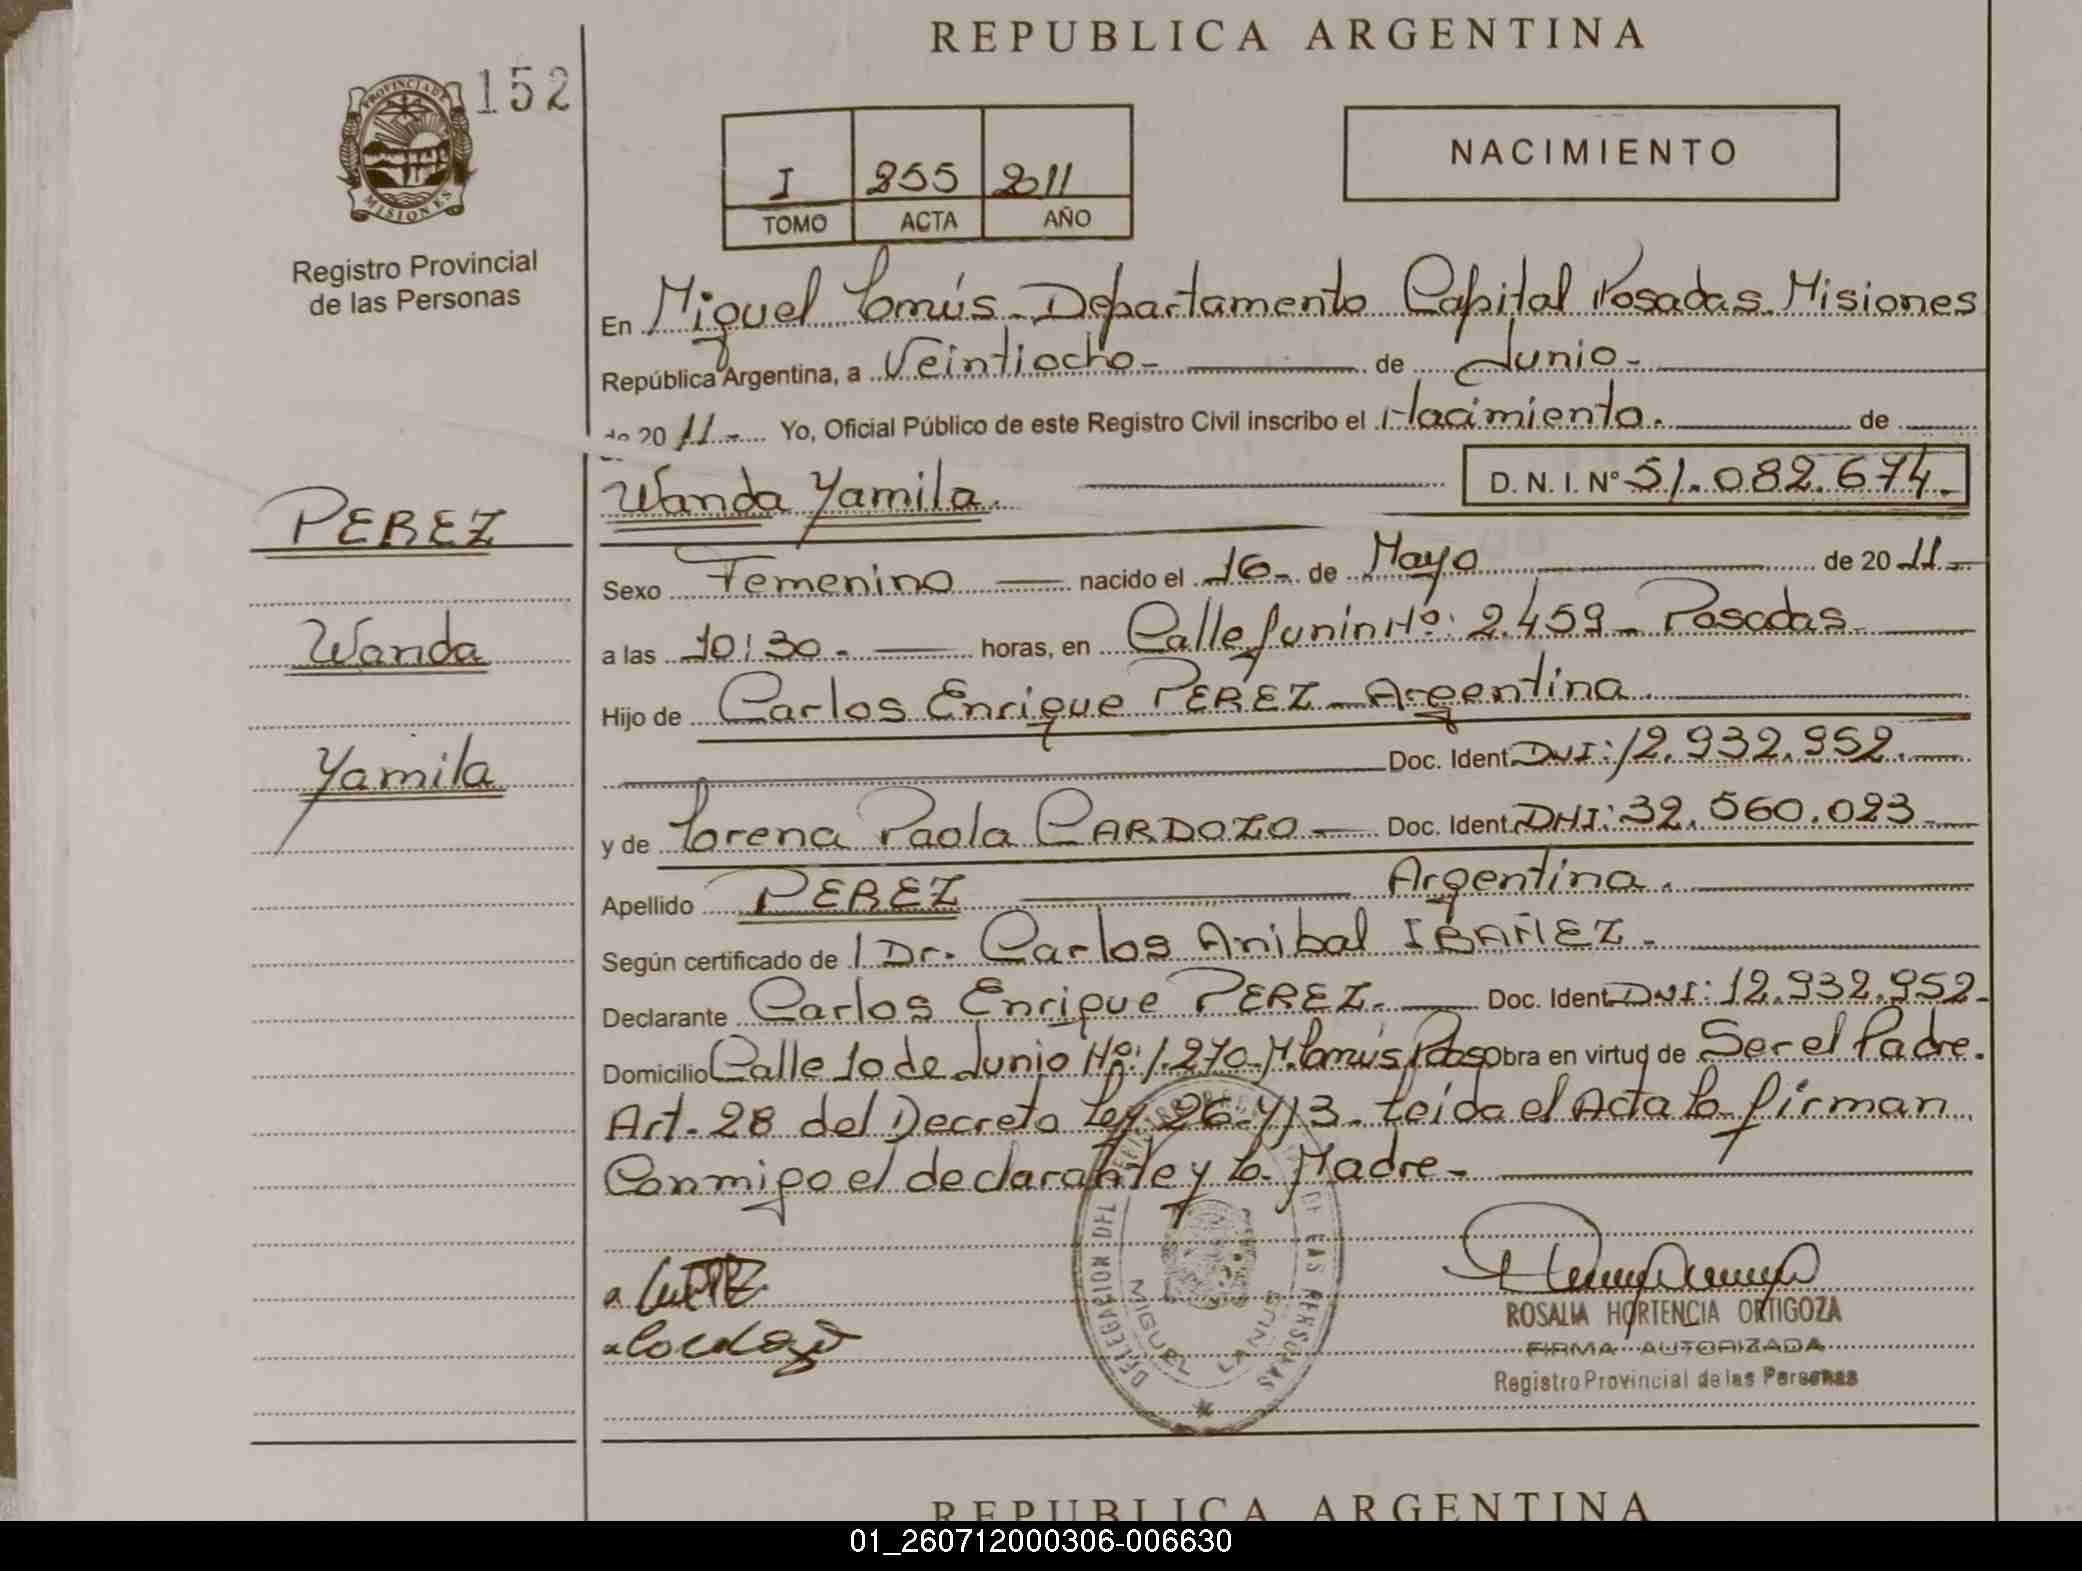 REPUBLICA ARGENTINA
152
PROVINCIA DE MISIONES
Registro Provincial
de las Personas
I 255 2011
TOMO ACTA AÑO
NACIMIENTO
En Miguel Lanús - Departamento Capital Posadas Misiones
República Argentina, a Veintiocho - de Junio -
de 2011 - Yo, Oficial Público de este Registro Civil inscribo el Nacimiento. de
PEREZ
Wanda
Yamila
Wanda Yamila. D. N. I. Nº 51.082.674 -
Sexo Femenino nacido el 16 - de Mayo de 2011 -
a las 10:30 - horas, en Calle Junín Nº: 2.459 - Posadas
Hijo de Carlos Enrique PEREZ - Argentina.
Doc. Ident. DNI: 12.932.952.
y de Lorena Paola CARDOZO - Doc. Ident. DNI: 32.560.023
Apellido PEREZ Argentina.
Según certificado de Dr. Carlos Anibal IBAÑEZ -
Declarante Carlos Enrique PEREZ. Doc. Ident. DNI: 12.932.952 -
Domicilio Calle 10 de Junio Nº: 1.270 - M. Lanús Pdas obra en virtud de Ser el Padre.
Art. 28 del Decreto Ley 26.413 - Leída el Acta la firman
Conmigo el declarante y la Madre -
DELEGACION DEL REGISTRO DE LAS PERSONAS
MIGUEL LANUS
ROSALIA HORTENCIA ORTIGOZA
FIRMA AUTORIZADA
Registro Provincial de las Personas
REPUBLICA ARGENTINA
01_260712000306-006630